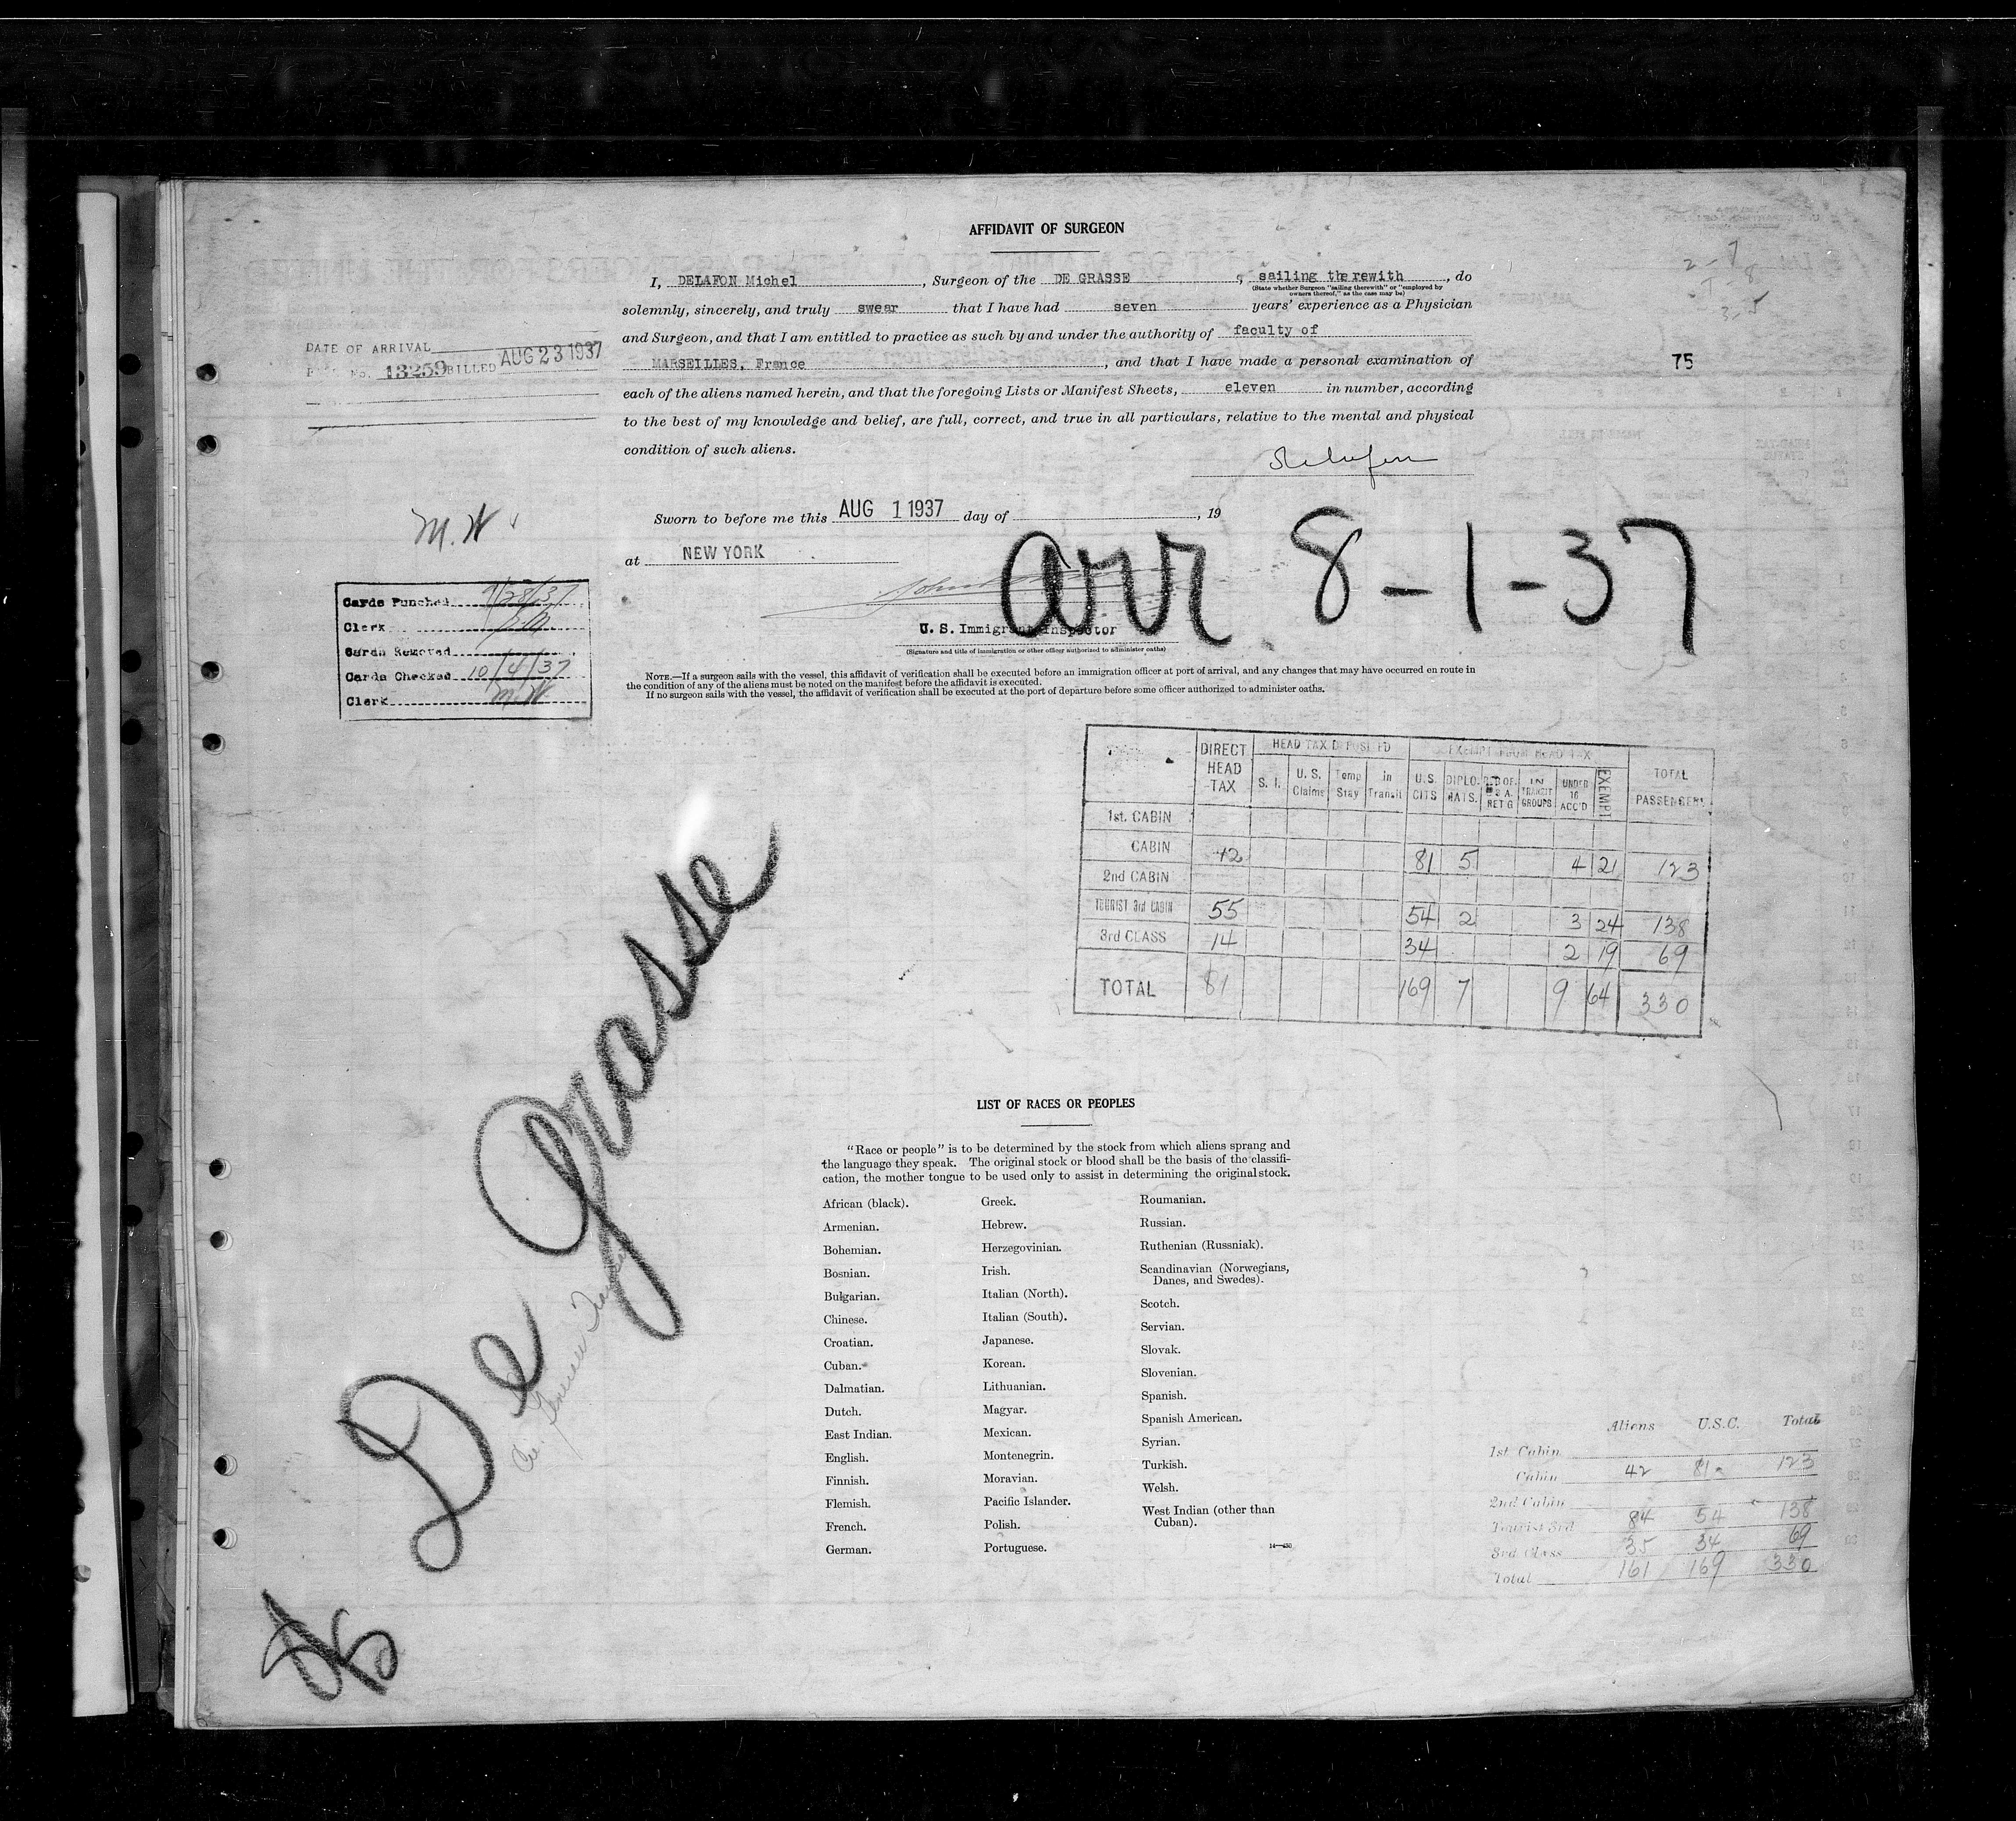 AFFIDAVIT OF SURGEON
I, DELAFON Michel, Surgeon of the DE GRASSE, sailing therewith, do
(State whether Surgeon "sailing therewith" or "employed by
owners thereof," as the case may be)
solemnly, sincerely, and truly swear that I have had seven years' experience as a Physician
and Surgeon, and that I am entitled to practice as such by and under the authority of faculty of
MARSEILLES, France, and that I have made a personal examination of
each of the aliens named herein, and that the foregoing Lists or Manifest Sheets, eleven in number, according
to the best of my knowledge and belief, are full, correct, and true in all particulars, relative to the mental and physical
condition of such aliens.
Delafon
DATE OF ARRIVAL
NO. 13259 BILLED AUG 23 1937
75
Sworn to before me this AUG 1 1937 day of , 19
at NEW YORK
arr 8-1-37
U. S. Immigrant Inspector
(Signature and title of immigration or other officer authorized to administer oaths)
M.W
Cards Punched 9/28/37
Clerk
Cards Removed
Cards Checked 10/4/37
Clerk M.W
NOTE.—If a surgeon sails with the vessel, this affidavit of verification shall be executed before an immigration officer at port of arrival, and any changes that may have occurred en route in
the condition of any of the aliens must be noted on the manifest before the affidavit is executed.
If no surgeon sails with the vessel, the affidavit of verification shall be executed at the port of departure before some officer authorized to administer oaths.
DIRECT HEAD TAX HEAD TAX DEPOSITED EXEMPT FROM HEAD TAX TOTAL PASSENGERS
S. I. U. S. Claims Temp Stay in Transit U.S. CITS DIPLO. MATS. RES OF. U S A. RET G IN TRANSIT GROUPS UNDER 16 ACC'D EXEMPT
1st. CABIN
CABIN 42 81 5 4 21 123
2nd CABIN
TOURIST 3rd CABIN 55 54 2 3 24 138
3rd CLASS 14 34 2 19 69
TOTAL 81 169 7 9 64 330
De Grasse
LIST OF RACES OR PEOPLES
"Race or people" is to be determined by the stock from which aliens sprang and
the language they speak. The original stock or blood shall be the basis of the classifi-
cation, the mother tongue to be used only to assist in determining the original stock.
African (black).
Armenian.
Bohemian.
Bosnian.
Bulgarian.
Chinese.
Croatian.
Cuban.
Dalmatian.
Dutch.
East Indian.
English.
Finnish.
Flemish.
French.
German.
Greek.
Hebrew.
Herzegovinian.
Irish.
Italian (North).
Italian (South).
Japanese.
Korean.
Lithuanian.
Magyar.
Mexican.
Montenegrin.
Moravian.
Pacific Islander.
Polish.
Portuguese.
Roumanian.
Russian.
Ruthenian (Russniak).
Scandinavian (Norwegians,
Danes, and Swedes).
Scotch.
Servian.
Slovak.
Slovenian.
Spanish.
Spanish American.
Syrian.
Turkish.
Welsh.
West Indian (other than
Cuban).
Aliens U.S.C. Total
1st Cabin
Cabin 42 81 123
2nd Cabin
Tourist 3rd 84 54 138
3rd Class 35 34 69
Total 161 169 330